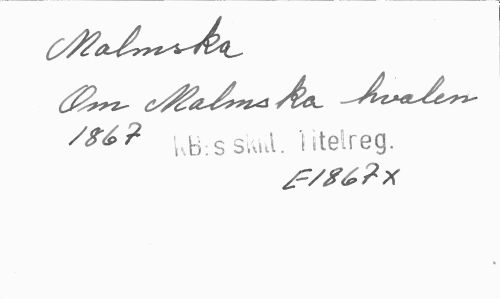 Malmska
Om Malmska hvalen
1867 KB:s skill. Titelreg.
E1867x